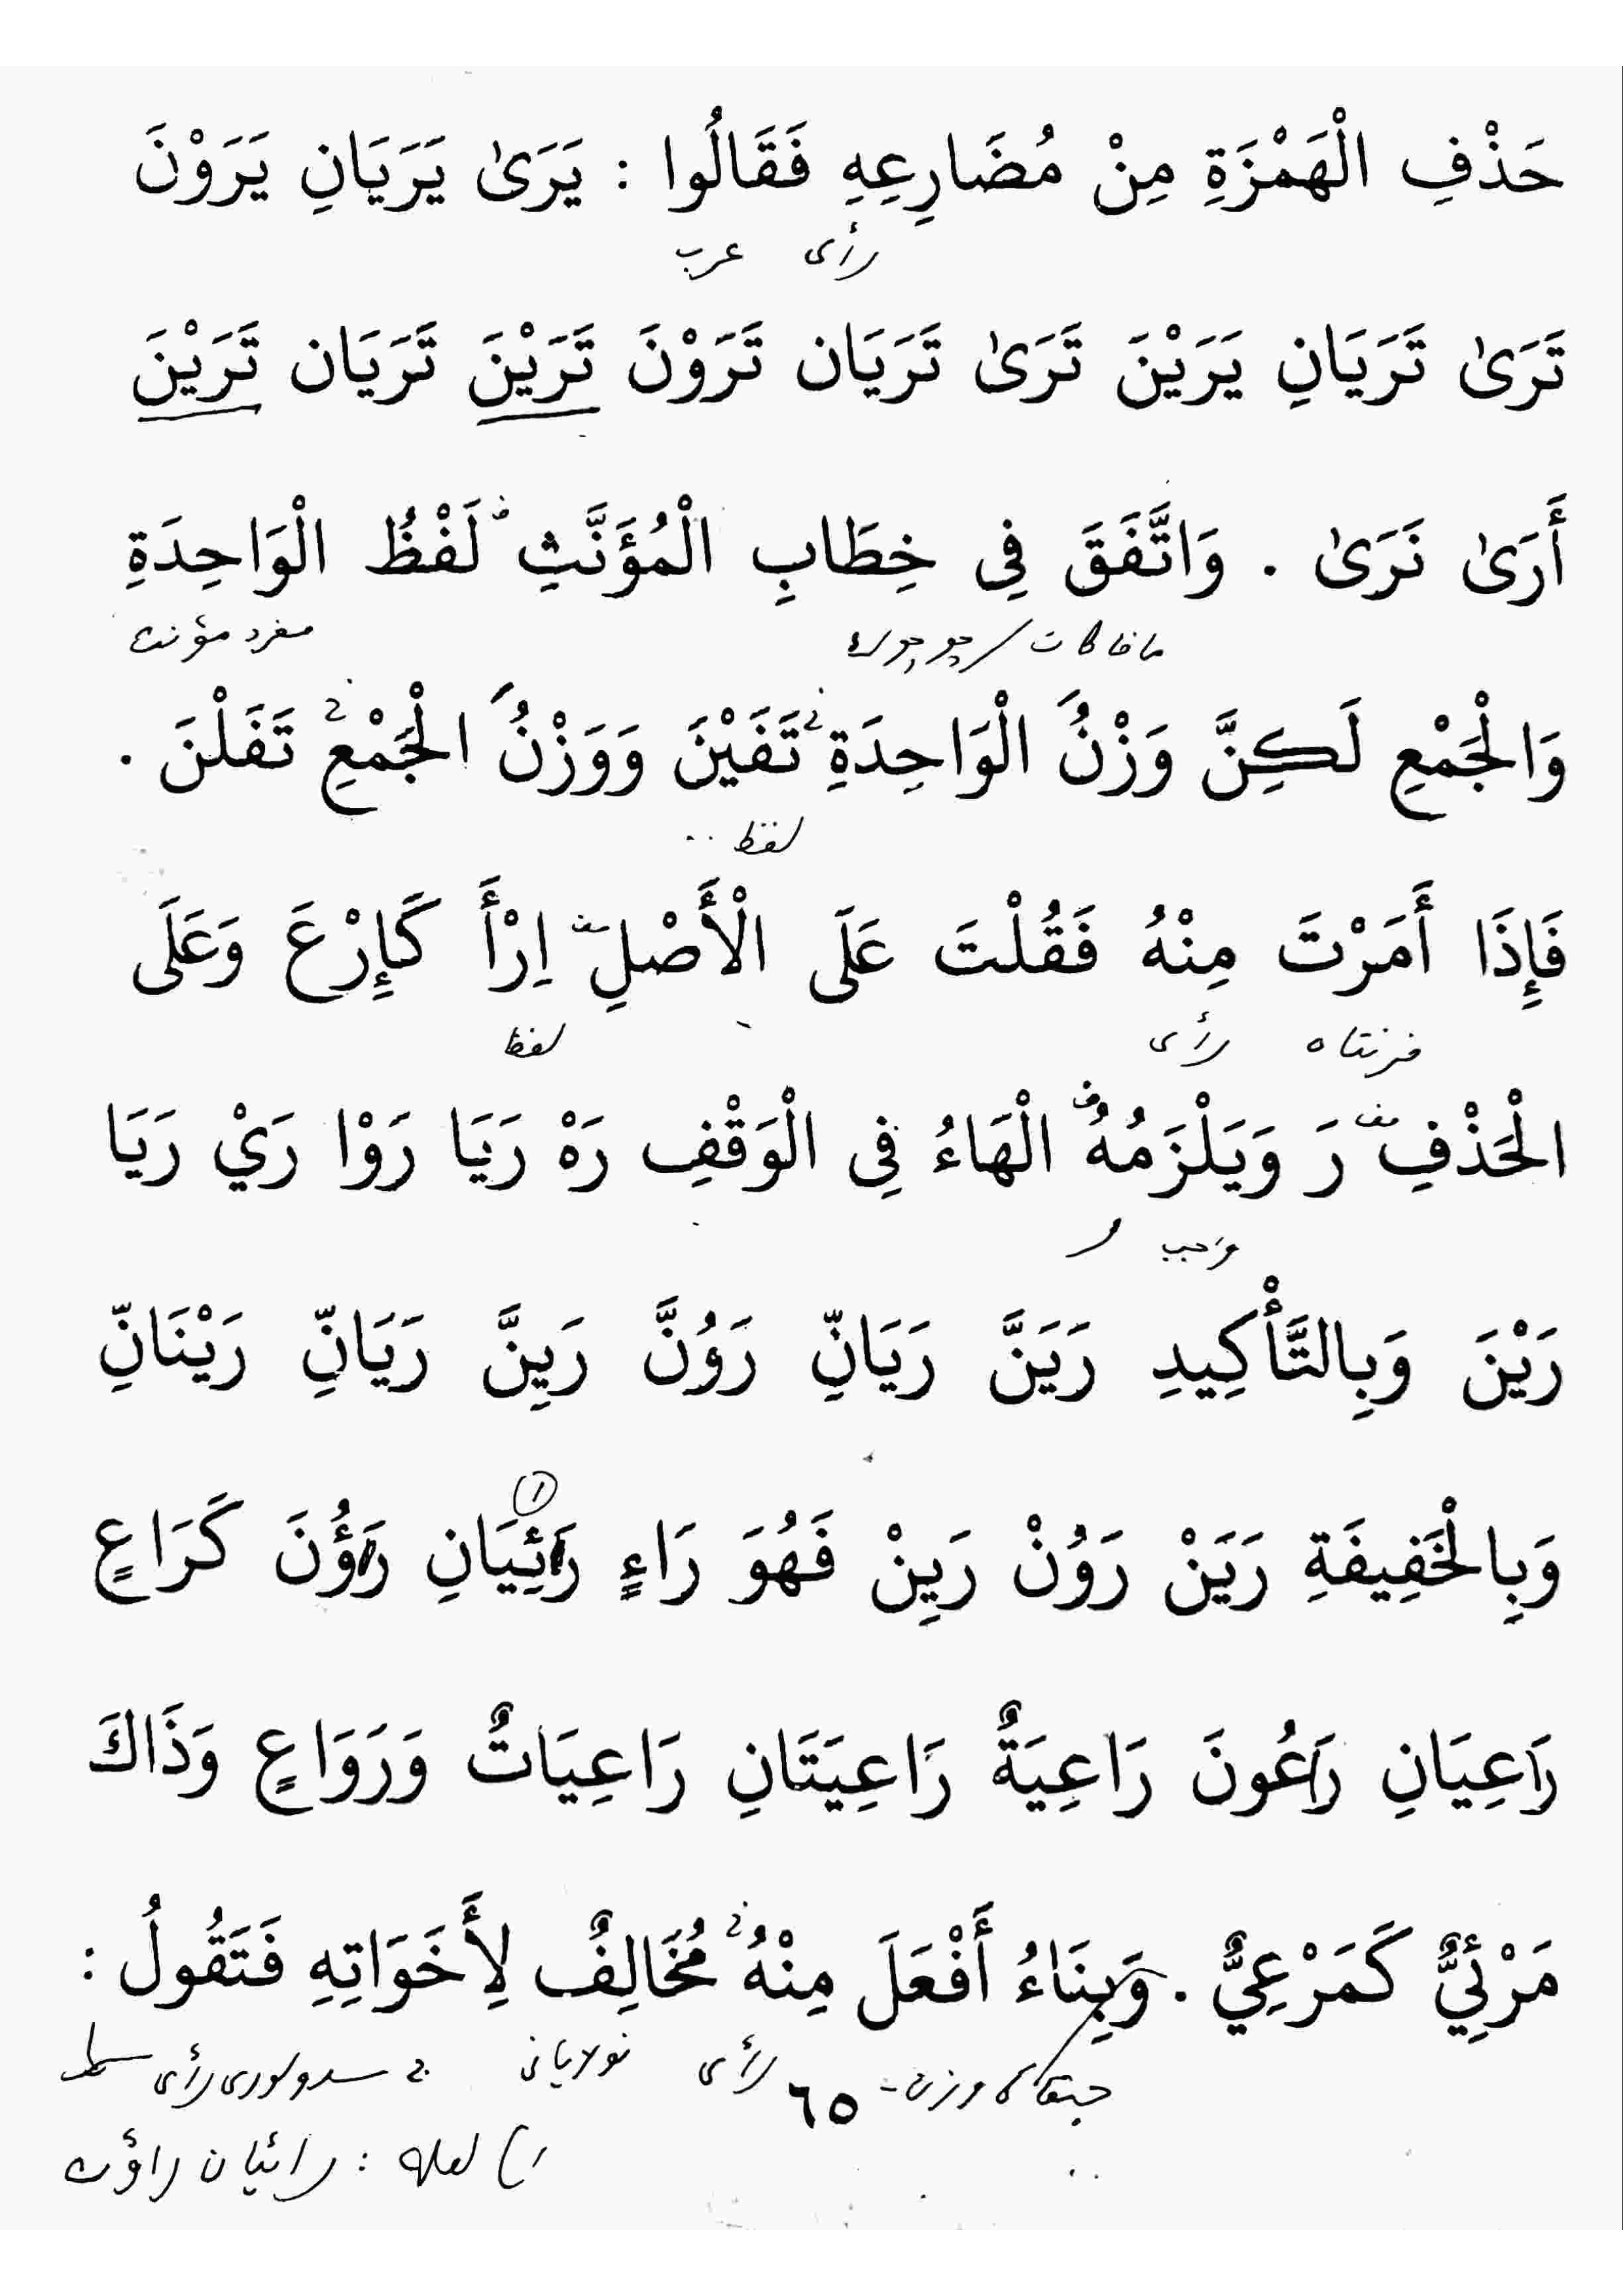 حَذْفِ الْهَمْزَةِ مِنْ مُضَارِعِهِ فَقَالُوا : يَرَىٰ يَرَيَانِ يَرَوْنَ
رأى عرب
تَرَىٰ تَرَيَانِ يَرَيْنَ تَرَىٰ تَرَيَان تَرَوْنَ تَرَيْنَ تَرَيَان تَرَيْنَ
أَرَىٰ نَرَىٰ . وَاتَّفَقَ فِى خِطَابِ الْمُؤَنَّثِ لَفْظُ الْوَاحِدَةِ
مفرد مؤنث
وَالْجَمْعِ لَكِنَّ وَزْنُ الْوَاحِدَةِ تَفَيْنَ وَوَزْنُ الْجَمْعِ تَفَلْنَ .
لفظ
فَإِذَا أَمَرْتَ مِنْهُ فَقُلْتَ عَلَى الْأَصْلِ اِرْأَ كَإِرْعَ وَعَلَى
فرنتاه رأى لفظ
الْحَذْفِ رَ وَيَلْزَمُهُ الْهَاءُ فِى الْوَقْفِ رَهْ رَيَا رَوْا رَيْ رَيَا
واجب ر
رَيْنَ وَبِالتَّأْكِيدِ رَيَنَّ رَيَانِّ رَوُنَّ رَيِنَّ رَيَانِّ رَيْنَانِّ
وَبِالْخَفِيفَةِ رَيَنْ رَوُنْ رَيِنْ فَهُوَ رَاءٍ رَائِيَانِ (١) رَاؤُنَ كَرَاعٍ
رَاعِيَانِ رَاعُونَ رَاعِيَةٌ رَاعِيَتَانِ رَاعِيَاتٌ وَرَوَاعٍ وَذَاكَ
مَرْئِيٌّ كَمَرْعِيٌّ . وَبِنَاءُ أَفْعَلَ مِنْهُ مُخَالِفٌ لِأَخَوَاتِهِ فَتَقُولُ :
وزن رأى نولاياني سدولورى رأى
٦٥
١) لعله : رائيان راؤن